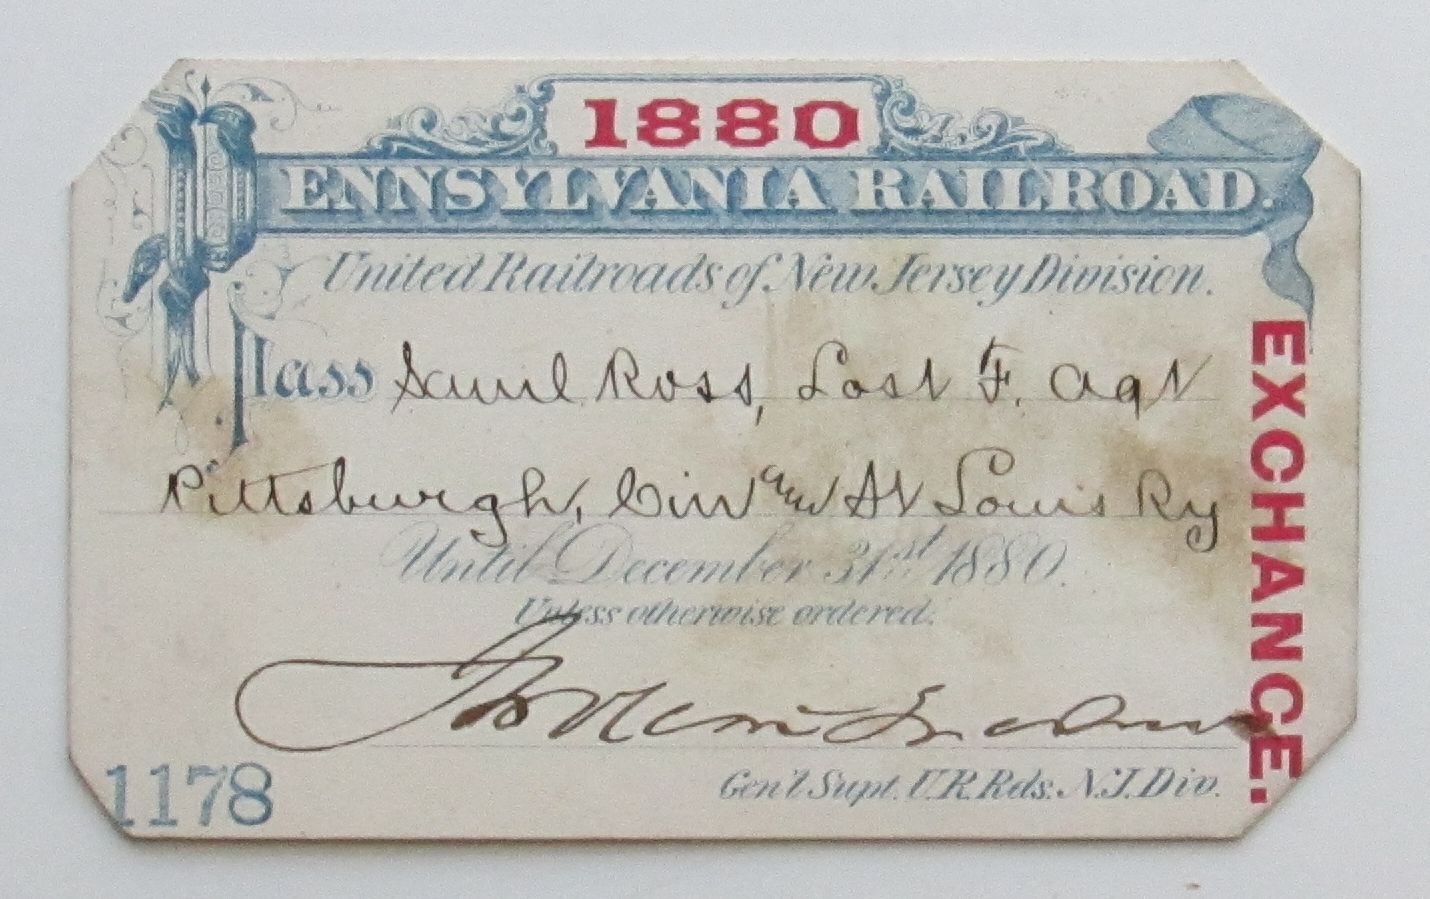 1880
PENNSYLVANIA RAILROAD.
United Railroads of New Jersey Division.
Pass Saml Ross, Lost F. Agt
Pittsburgh, Cin and St Louis Ry
Until December 31st 1880.
Unless otherwise ordered.
Gen'l Supt. U.R.Rds. N.J. Div.
1178
EXCHANGE.